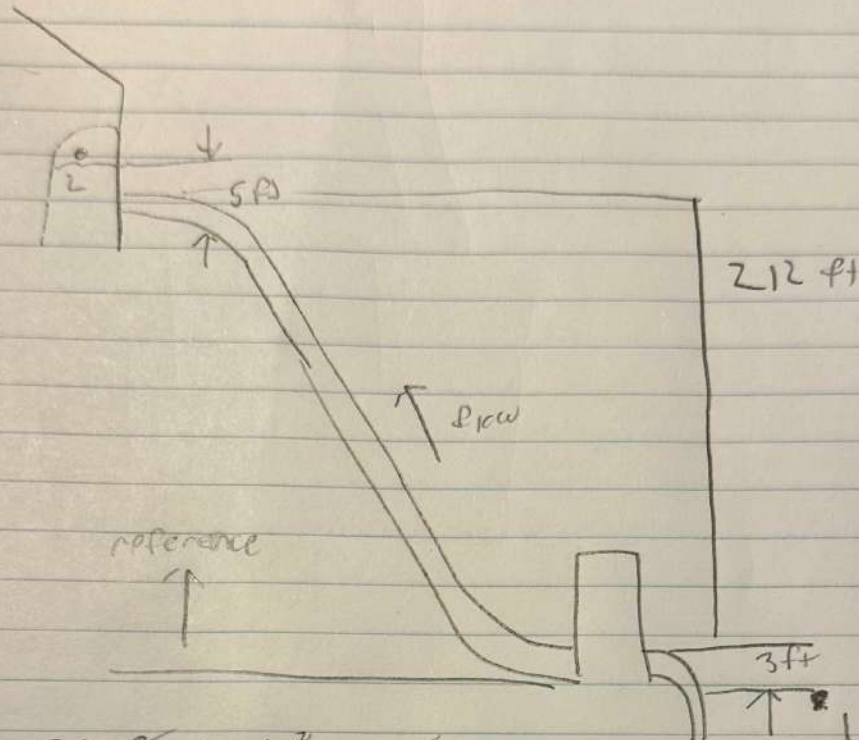 2
5 ft
212 ft
flow
reference
3ft